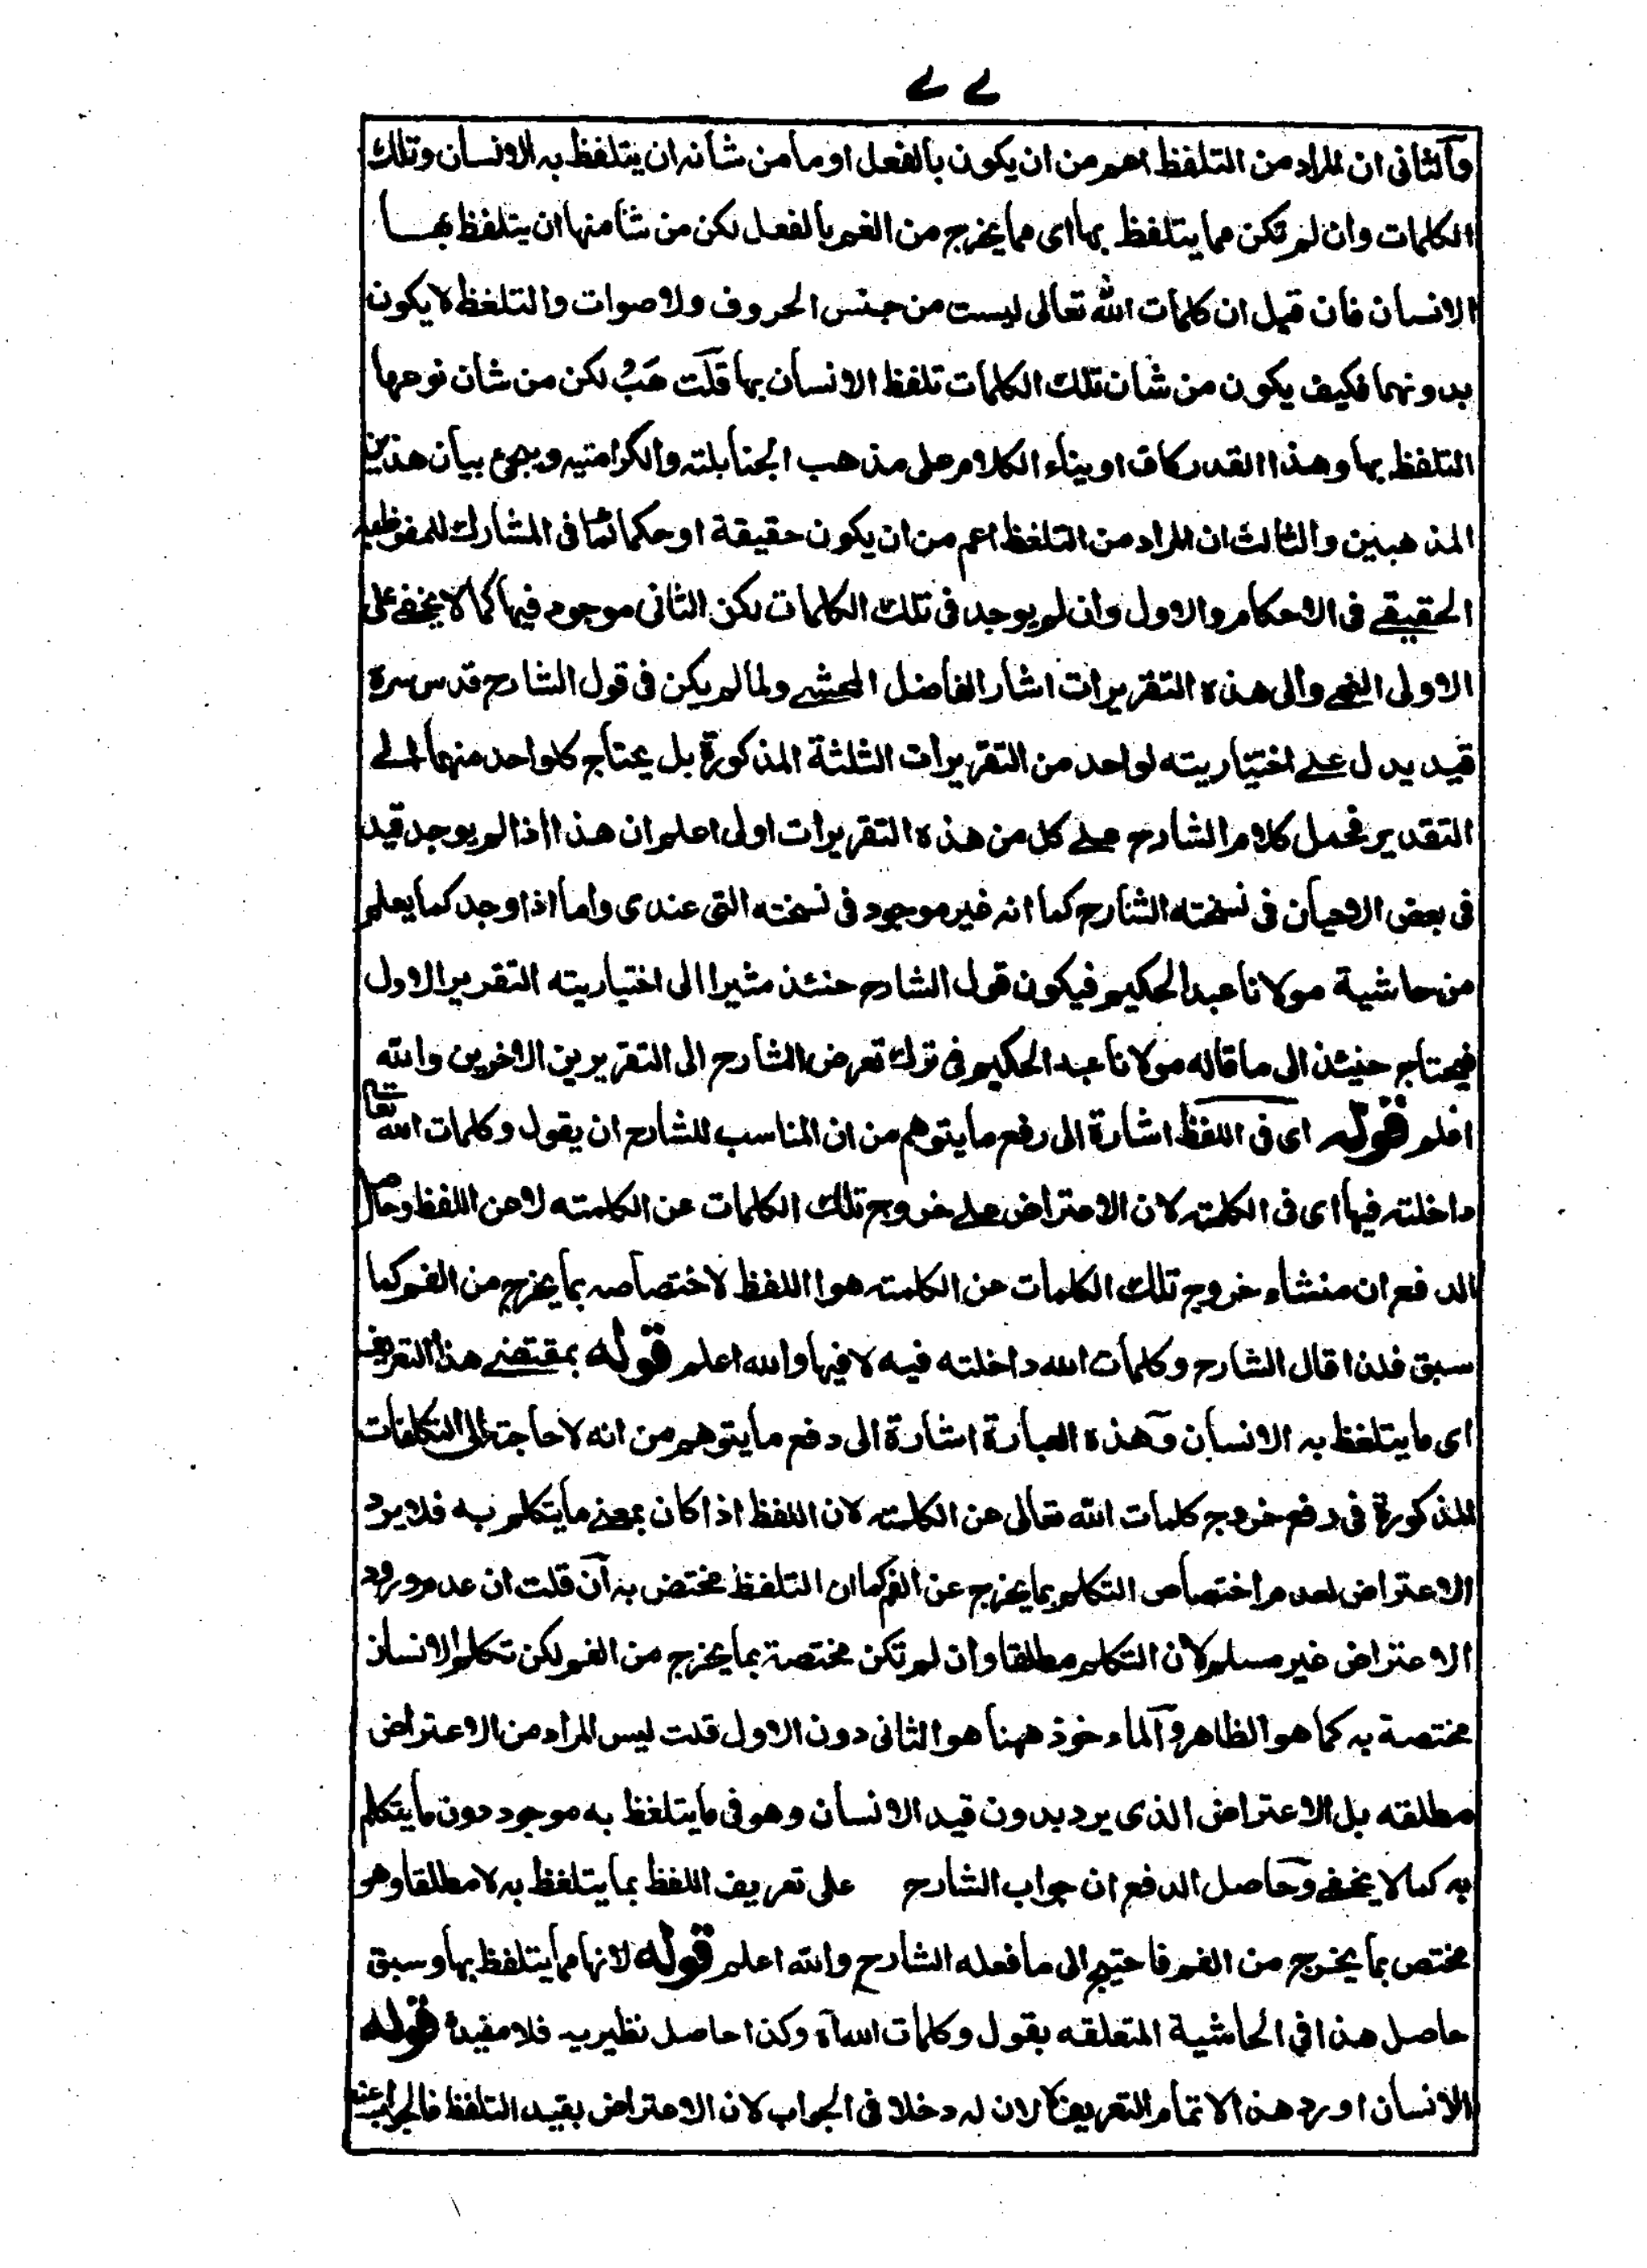 ٧٧
وآلثانی ان المراد من التلفظ اعم من ان یکون بالفعل او ما من شانه ان یتلفظ به الانسان وتلك
الکلمات وان لم تکن مما یتلفظ بها ای مما یخرج من الفم بالفعل لکن من شانها ان یتلفظ بها
الانسان فان قیل ان کلمات الله تعالی لیست من جنس الحروف ولاصوات والتلفظ لا یکون
بدونهما فکیف یکون من شان تلك الکلمات تلفظ الانسان بها قلت هَبْ لکن من شان نوعها
التلفظ بها وهذا القدر کاف او بناء الکلام علی مذهب الحنابلته والکرامتیه ویجئ بیان هذین
المذهبین والثالث ان المراد من التلفظ اعم من ان یکون حقیقة او حکما فی المشارك للمفوظیه
الحقیقے فی الاحکام والاول وان لم یوجد فی تلك الکلمات لکن الثانی موجود فیها کما لا یخفے علی
الاولی النهے والی هذه التقریرات اشار الفاضل المحشے ولما لم یکن فی قول الشارح قدس سره
قید یدل علے اختیاریته لواحد من التقریرات الثلثة المذکورة بل یحتاج کلواحد منهما الے
التقدیر فحمل کلام الشارح علے کل من هذه التقریرات اولی اعلم ان هذا اذا لم یوجد قید
فی بعض الاحیان فی نسخته الشارح کما انه غیر موجود فی نسخته التی عندی واما اذا وجد کما یعلم
من حاشیة مولانا عبدالحکیم فیکون قول الشارح حنئذ مشیرا الی اختیاریته التقریر الاول
فیحتاج حنیئذ الی ما قاله مولانا عبد الحکیم فی ترك تعرض الشارح الی التقریرین الاخرین والله
اعلم قوله ای فی اللفظ اشارة الی رفع ما یتوهم من ان المناسب للشارح ان یقول وکلمات الله تعالے
داخلته فیها ای فی الکلمته لان الاعتراض علے خروج تلك الکلمات عن الکلمته لا عن اللفظ وحاصل
الدفع ان منشاء خروج تلك الکلمات عن الکلمته هو اللفظ لاختصاصه بما یخرج من الفم کما
سبق فلذا قال الشارح وکلمات الله داخلته فیه لا فیها والله اعلم قوله بمقتضے هذا التعریف
ای ما یتلفظ به الانسان وهذه العبارة اشارة الی دفع ما یتوهم من انه لا حاجة الی التکلفات
المذکورة فی دفع خروج کلمات الله تعالی عن الکلمته لان اللفظ اذا کان بمعنے ما یتکلم به فلا یرد
الاعتراض لعدم اختصاص التکلم بما یخرج عن الفم کما ان التلفظ مختص به آن قلت ان عدم ورود
الاعتراض غیر مسلم لان التکلم مطلقا وان لم تکن مختصة بما یخرج من الفم لکن تکلم الانسان
مختصة به کما هو الظاهر والماءخوذ ههنا هو الثانی دون الاول قلت لیس المراد من الاعتراض
مطلقه بل الاعتراض الذی یرد بدون قید الانسان وهو فی ما یتلفظ به موجود دون ما یتکلم
به کما لا یخفے وحاصل الدفع ان جواب الشارح علی تعریف اللفظ بما یتلفظ به لا مطلقا وهو
مختص بما یخرج من الفم فاحتیج الی ما فعله الشارح والله اعلم قوله لانها مما یتلفظ بها وسبق
حاصل هذا فی الحاشیة المتعلقه بقول وکلمات الله آه وکذا حاصل نظیریه فلا مفید قوله
الانسان اورد هذا لاتمام التعریف لا لان له دخلا فی الجواب لان الاعتراض بقید التلفظ فالجواب عنه